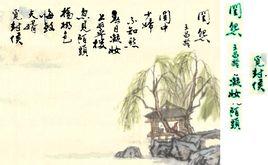 閨怨
王昌齡
閨中
少婦
不知愁
春日凝妝
上翠樓
忽見陌頭
楊柳色
悔教
夫婿
覓封侯
閨怨 王昌齡 凝妝 陌頭
覓封侯